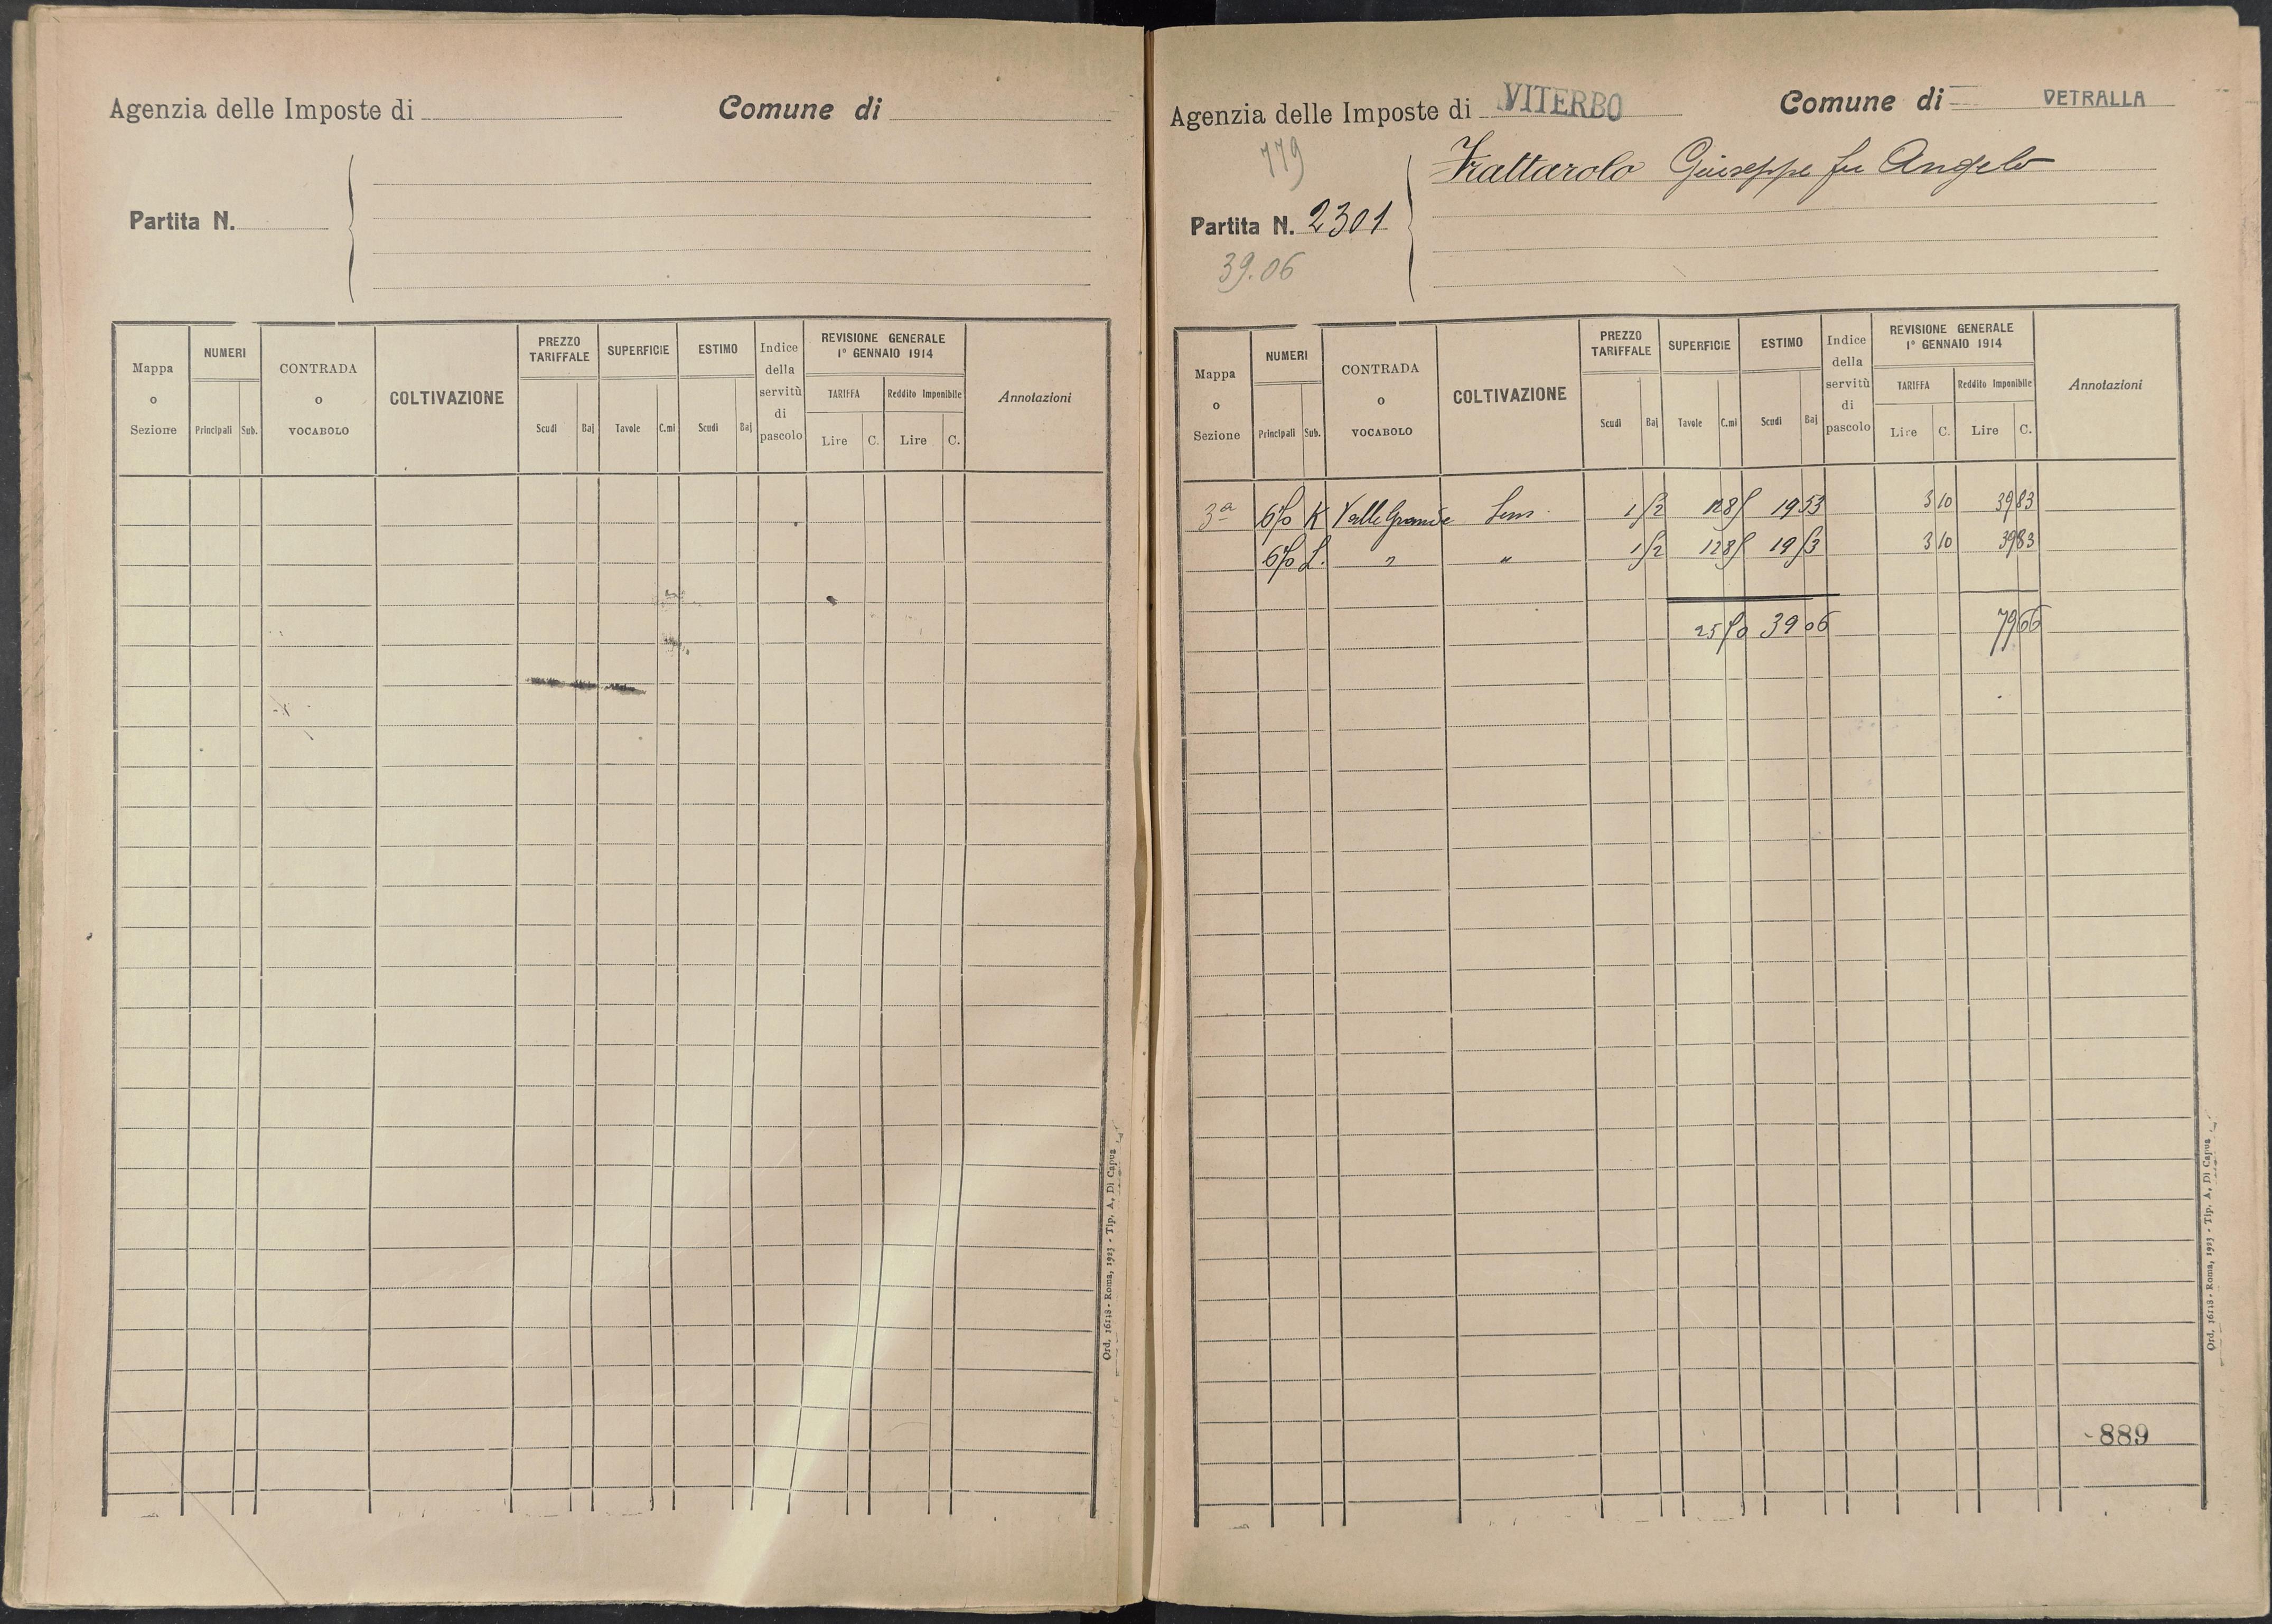 Agenzia delle Imposte di
Comune di
Partita N.
Mappa o Sezione
NUMERI
Principali
Sub.
CONTRADA o VOCABOLO
COLTIVAZIONE
PREZZO TARIFFALE
Scudi
Baj
SUPERFICIE
Tavole
C.mi
ESTIMO
Scudi
Baj
Indice della servitù di pascolo
REVISIONE GENERALE
1° GENNAIO 1914
TARIFFA
Reddito Imponibile
Lire
C.
Lire
C.
Annotazioni
Ord. 16118 - Roma, 1923 - Tip. A. Di Capua
Agenzia delle Imposte di VITERBO
Comune di VETRALLA
779
Frattarolo Giuseppe fu Angelo
Partita N. 2301
39.06
Mappa o Sezione
NUMERI
Principali
Sub.
CONTRADA o VOCABOLO
COLTIVAZIONE
PREZZO TARIFFALE
Scudi
Baj
SUPERFICIE
Tavole
C.mi
ESTIMO
Scudi
Baj
Indice della servitù di pascolo
REVISIONE GENERALE
1° GENNAIO 1914
TARIFFA
Reddito Imponibile
Lire
C.
Lire
C.
Annotazioni
3a K Valle Grande Sem. 1 52 12 85 19 53 3 10 39 83
L. " " 1 52 12 85 19 53 3 10 39 83
25 70 39 06 79 66
889
Ord. 16118 - Roma, 1923 - Tip. A. Di Capua